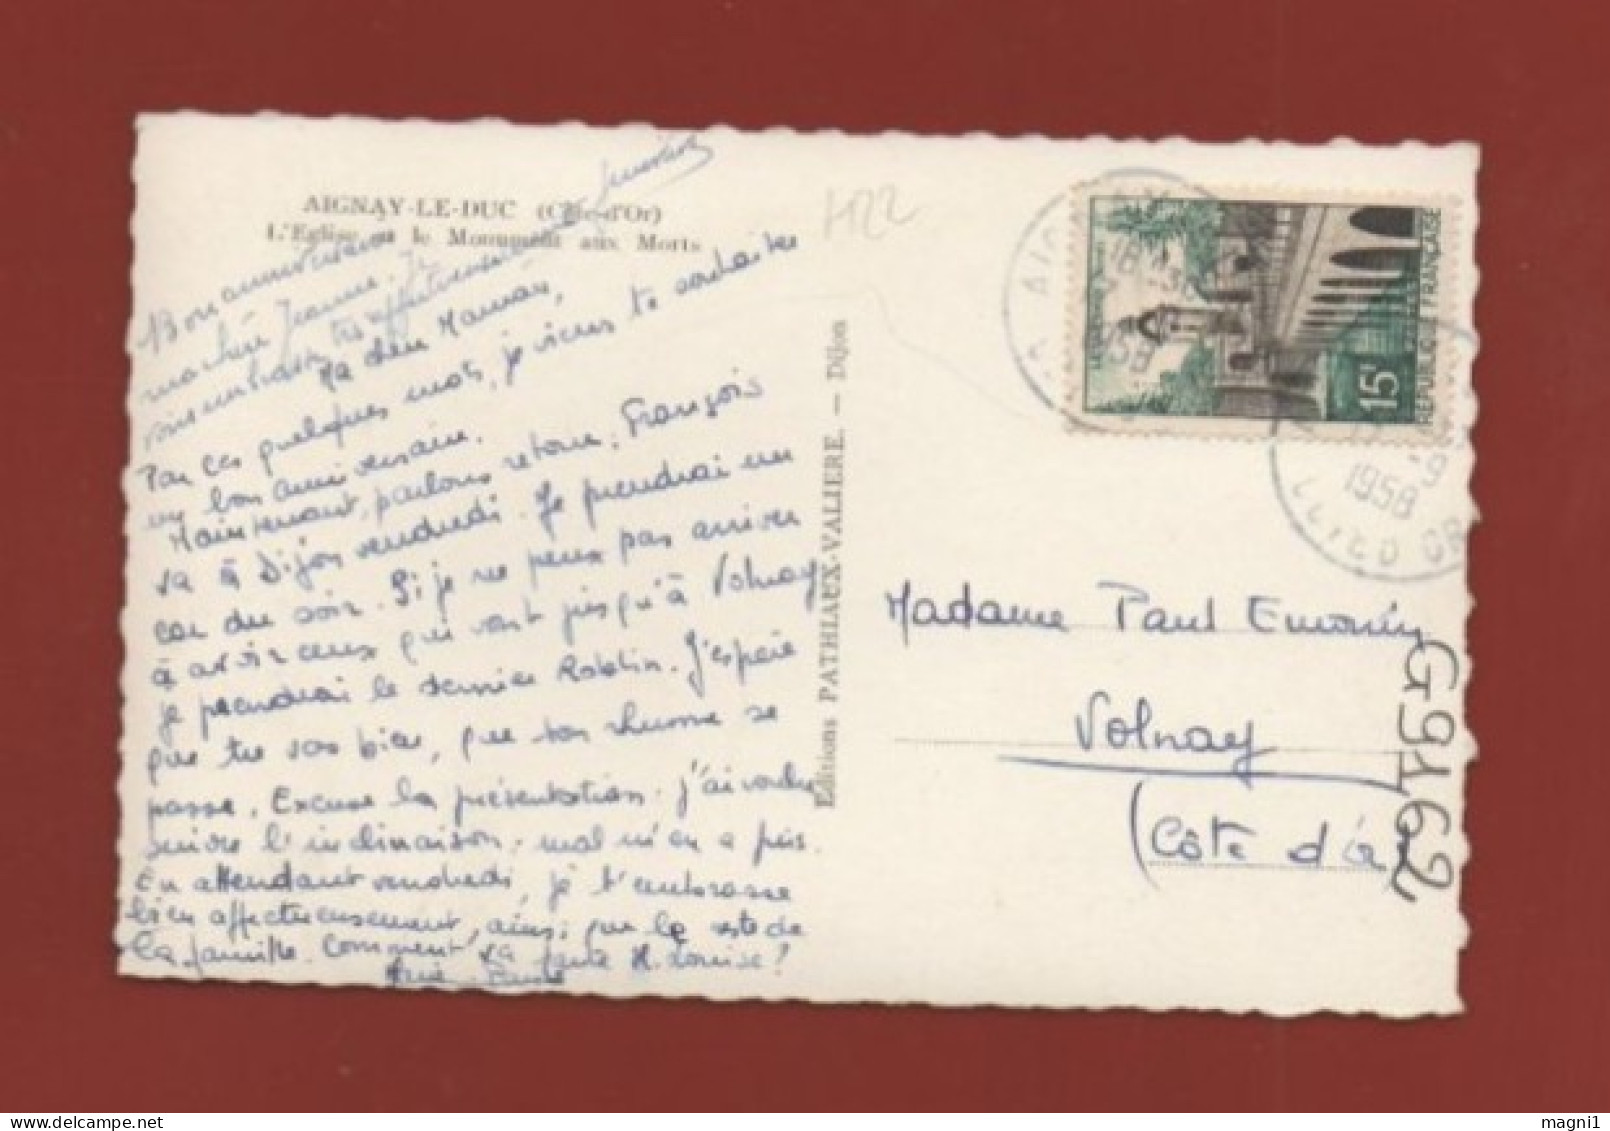 AIGNAY-LE-DUC (Côte-d'Or)
L'Eglise et le Monument aux Morts
H22
Bon anniversaire
ma chère Jeanne. Je
vous embrasse très affectueusement
Ma chère Maman,
Par ces quelques mots, je viens te souhaiter
un bon anniversaire.
Maintenant, parlons retour. François
va à Dijon vendredi. Je prendrai un
car du soir. Si je ne peux pas arriver
à avoir ceux qui vont jusqu'à Volnay
je prendrai le dernier Roblin. J'espère
que tu vas bien, que ton rhume se
passe. Excuse la présentation. J'ai voulu
suivre l'inclinaison, mal m'en a pris.
En attendant vendredi, je t'embrasse
bien affectueusement, ainsi que le reste de
la famille. Comment va tante M. Louise?
Editions PATHIAUX-VALIERE. — Dijon
15F
REPUBLIQUE FRANÇAISE
1958
Madame Paul Emonin
Volnay
(Côte d'Or)
G9162
magni1